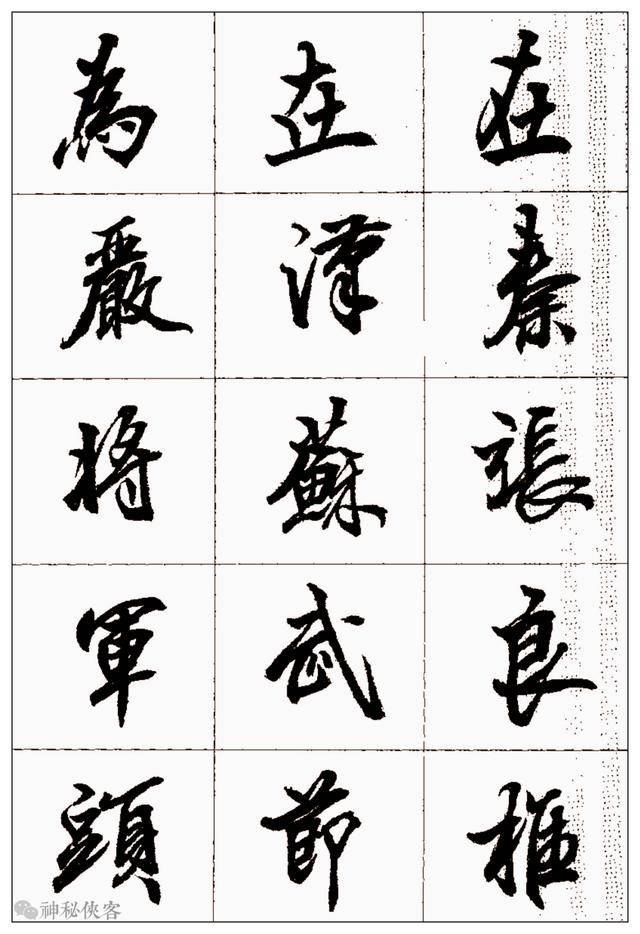 在秦張良椎
在漢蘇武節
為嚴將軍頭
神秘侠客